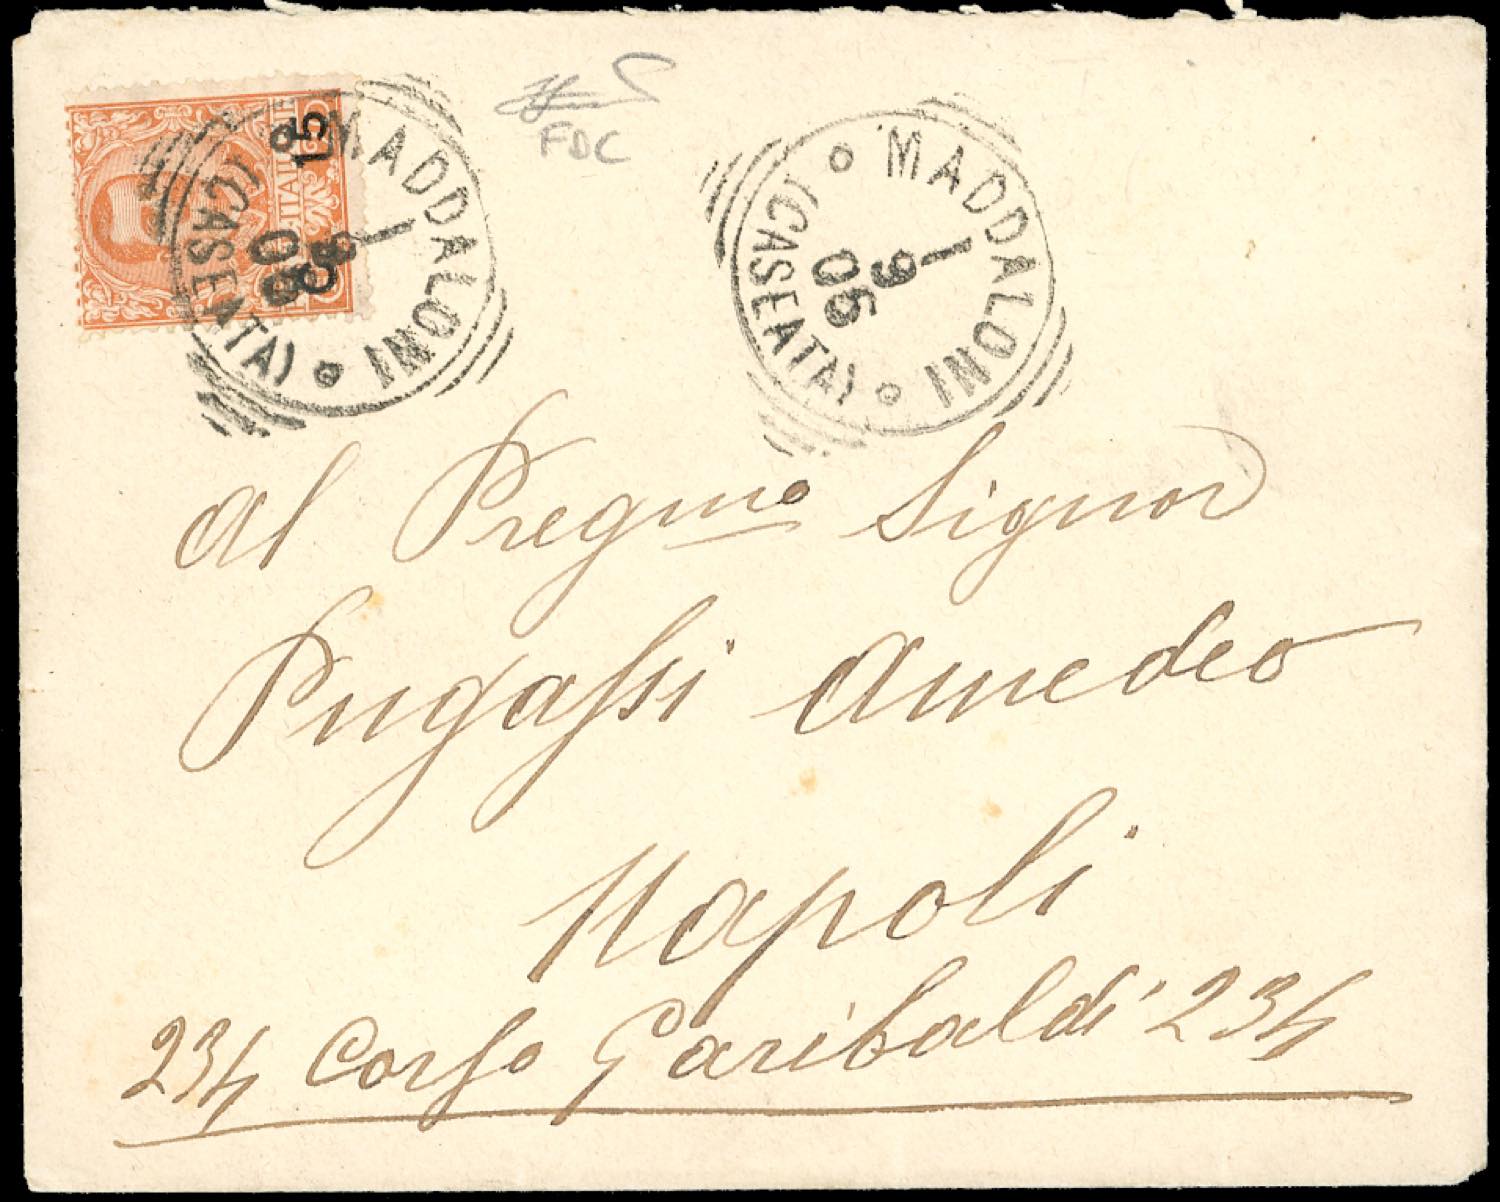 C. 15
ITALIANE
MADDALONI
1 9 05
(CASERTA)
FDC
MADDALONI
1 9 05
(CASERTA)
Al Pregmo Signor
Pugassi Amedeo
Napoli
234 Corso Garibaldi 234